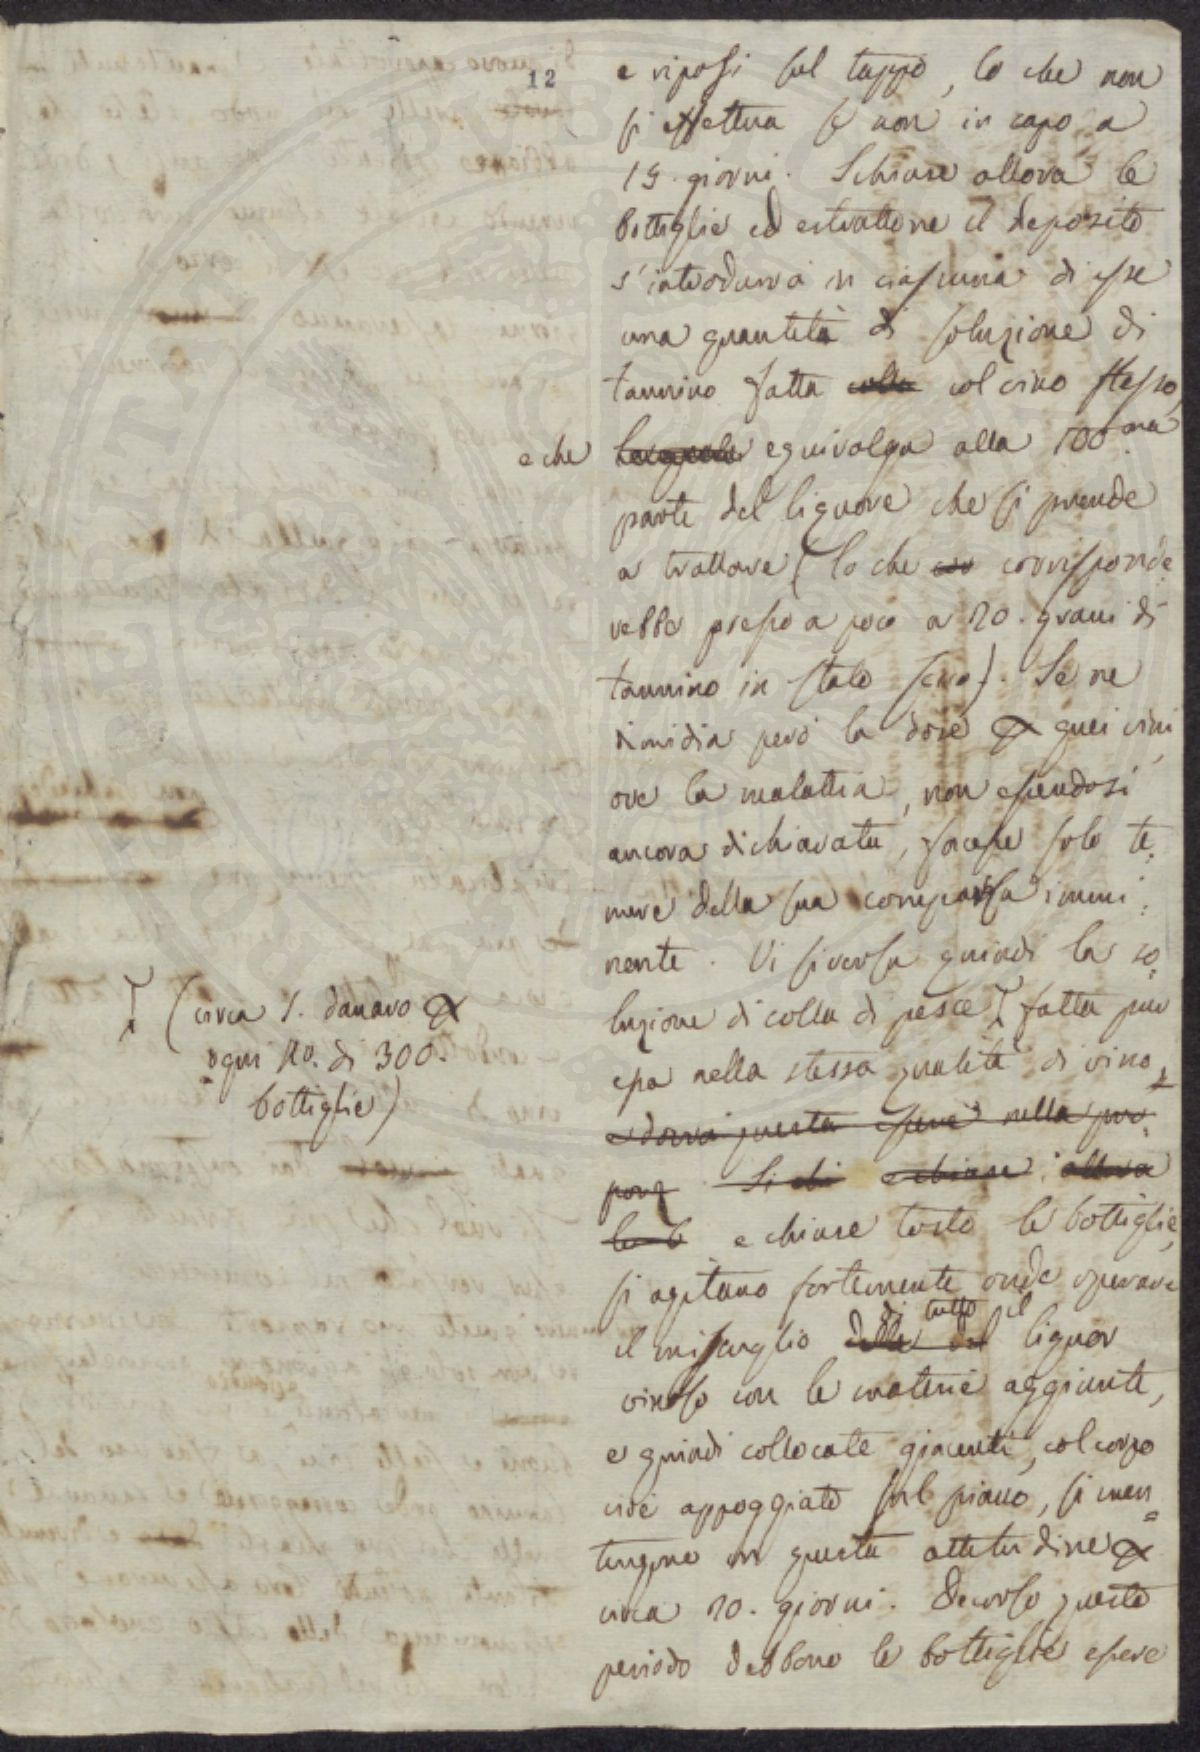 12
e riposi sul tappo, lo che non
si effettua se non in capo a
15. giorni. Schiuse allora le
bottiglie ed estrattone il deposito
s'introdurrà in ciascuna di esse
una quantità di soluzione di
tannino fatta colla col vino stesso,
e che la quale equivalga alla 100.ma
parte del liquore che si prende
a trattare (lo che cor corrisponde
rebbe presso a poco a 20. grani di
tannino in stato secco). Se ne
dimidia però la dose per quei vini,
ove la malattia, non essendosi
ancora dichiarata, facesse solo te
mere della sua comparsa immi
nente. Vi si versa quindi la so
luzione di colla di pesce fatta pur
essa nella stessa qualità di vino,
(circa 1. danaro per
ogni no. di 300.
bottiglie)
e dovrà questa essere nella pro
porz Si chi schiuse allora
le b e chiuse tosto le bottiglie,
si agitano fortemente onde operare
il miscuglio della del di tutto il liquor
vinoso con le materie aggiunte,
e quindi collocate giacenti, col corpo
cioè appoggiato sul piano, si man
tengono in questa attitudine per
circa 20. giorni. Decorso questo
periodo debbono le bottiglie essere